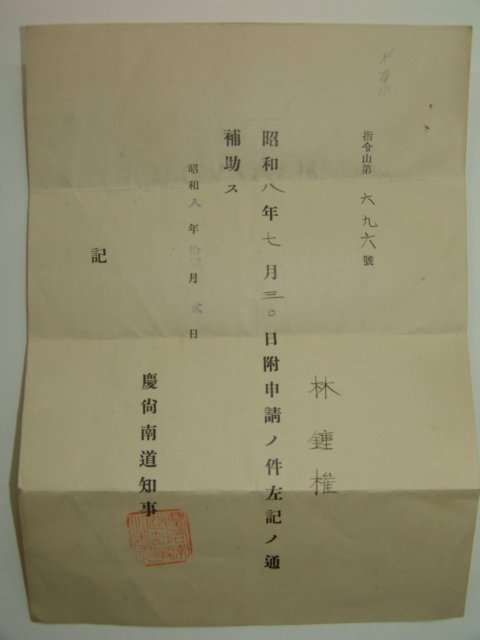 指令山第六九六號
林鍾權
昭和八年七月三〇日附申請ノ件左記ノ通
補助ス
昭和八年拾壹月貳日
慶尙南道知事
記